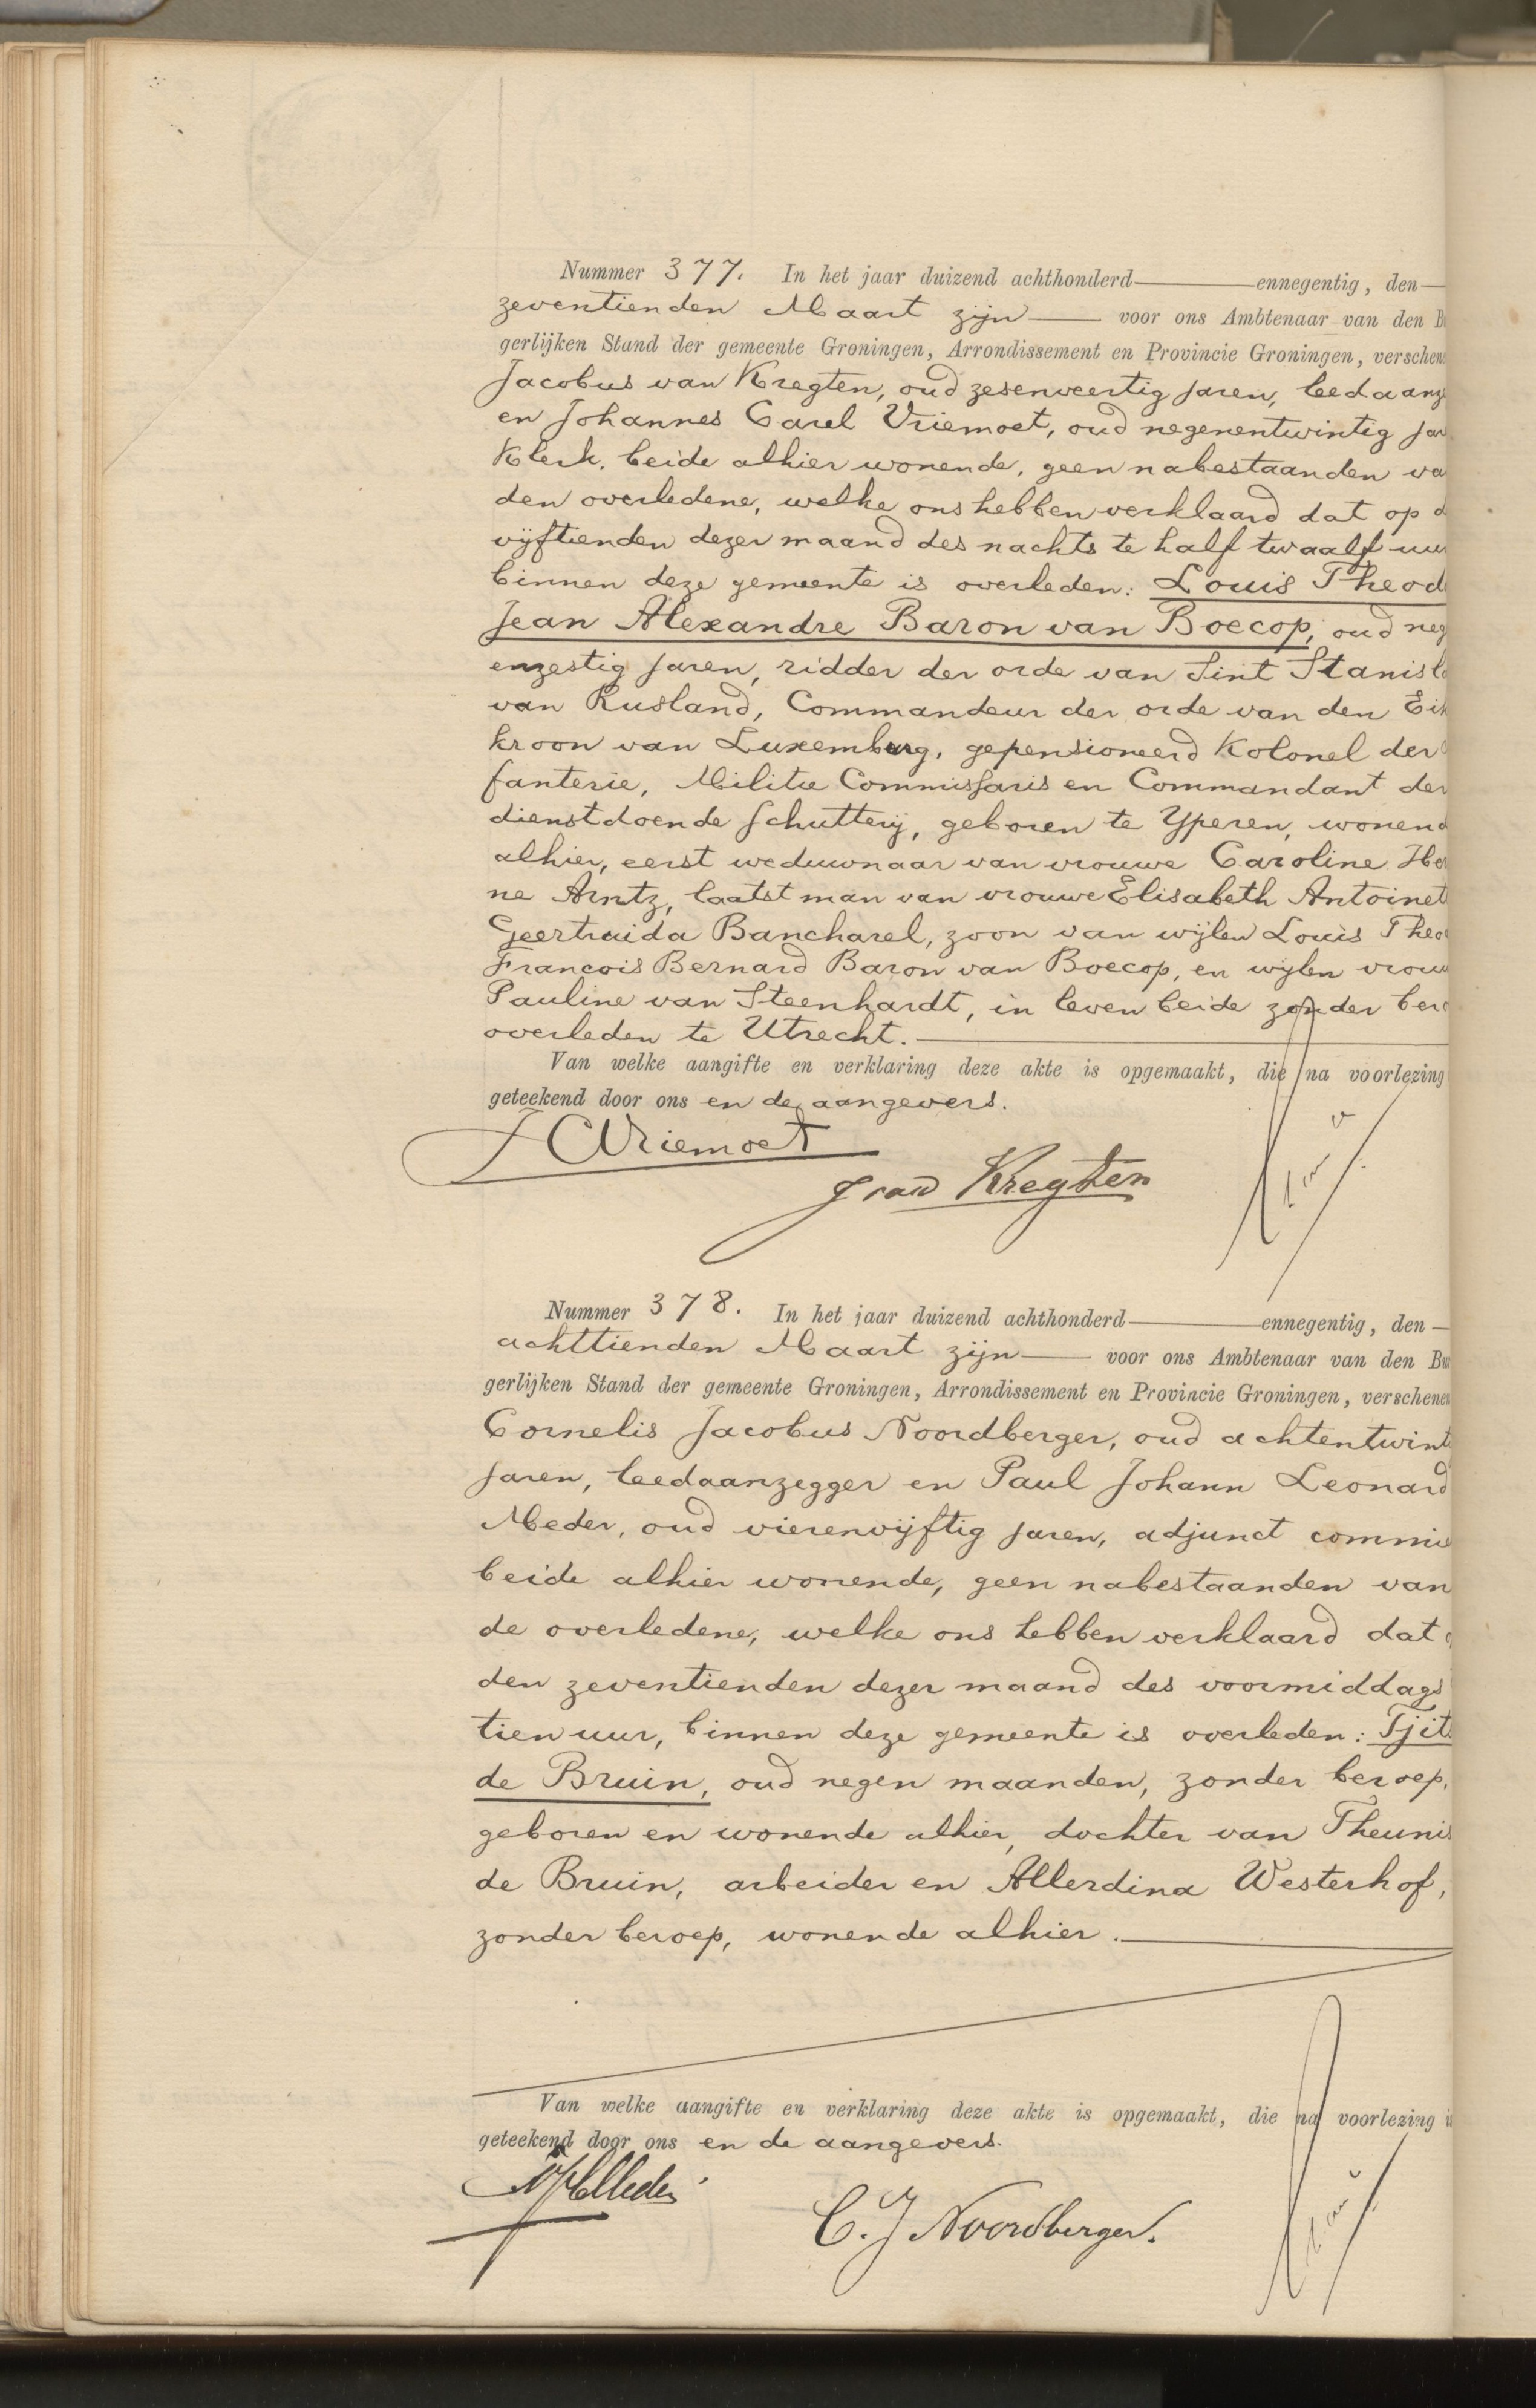 Nummer 377. In het jaar duizend achthonderd———ennegentig, den—
zeventienden Maart zijn—— voor ons Ambtenaar van den B
gerlijken Stand der gemeente Groningen, Arrondissement en Provincie Groningen, verschen
Jacobus van Kregten, oud zesenveertig jaren, leedaanz
en Johannes Carel Vriemoet, oud negenentwintig jar
Klerk, beide alhier wonende, geen nabestaanden va
den overledene, welke ons hebben verklaard dat op d
vijftienden dezer maand des nachts te half twaalf uur
binnen deze gemeente is overleden: Louis Theod
Jean Alexandre Baron van Boecop, oud neg
enzestig jaren, ridder der orde van Sint Stanisla
van Rusland, Commandeur der orde van den Eik
kroon van Luxemburg, gepensioneerd Kolonel der
fanterie, Militie Commissaris en Commandant der
dienstdoende schutterij, geboren te Yperen, wonend
alhier, eerst weduwnaar van vrouwe Caroline Her
ne Arntz, laatst man van vrouwe Elisabeth Antoinet
Geertruida Bancharel, zoon van wijlen Louis Theo
Francois Bernard Baron van Boecop, en wijlen vrouw
Pauline van Steenhardt, in leven beide zonder bero
overleden te Utrecht.——
Van welke aangifte en verklaring deze akte is opgemaakt, die na voorlezing
geteekend door ons en de aangevers.
J C Vriemoet
J van Kregten
Nummer 378. In het jaar duizend achthonderd———ennegentig, den—
achttienden Maart zijn—— voor ons Ambtenaar van den Bu
gerlijken Stand der gemeente Groningen, Arrondissement en Provincie Groningen, verschenen
Cornelis Jacobus Noordberger, oud achtentwint
jaren, leedaanzegger en Paul Johann Leonard
Meder, oud vierenvijftig jaren, adjunct commie
beide alhier wonende, geen nabestaanden van
de overledene, welke ons hebben verklaard dat o
den zeventienden dezer maand des voormiddags
tien uur, binnen deze gemeente is overleden: Tjits
de Bruin, oud negen maanden, zonder beroep,
geboren en wonende alhier, dochter van Theunis
de Bruin, arbeider en Allerdina Westerhof,
zonder beroep, wonende alhier.——
Van welke aangifte en verklaring deze akte is opgemaakt, die na voorlezing i
geteekend door ons en de aangevers.
C. J Noordberger.